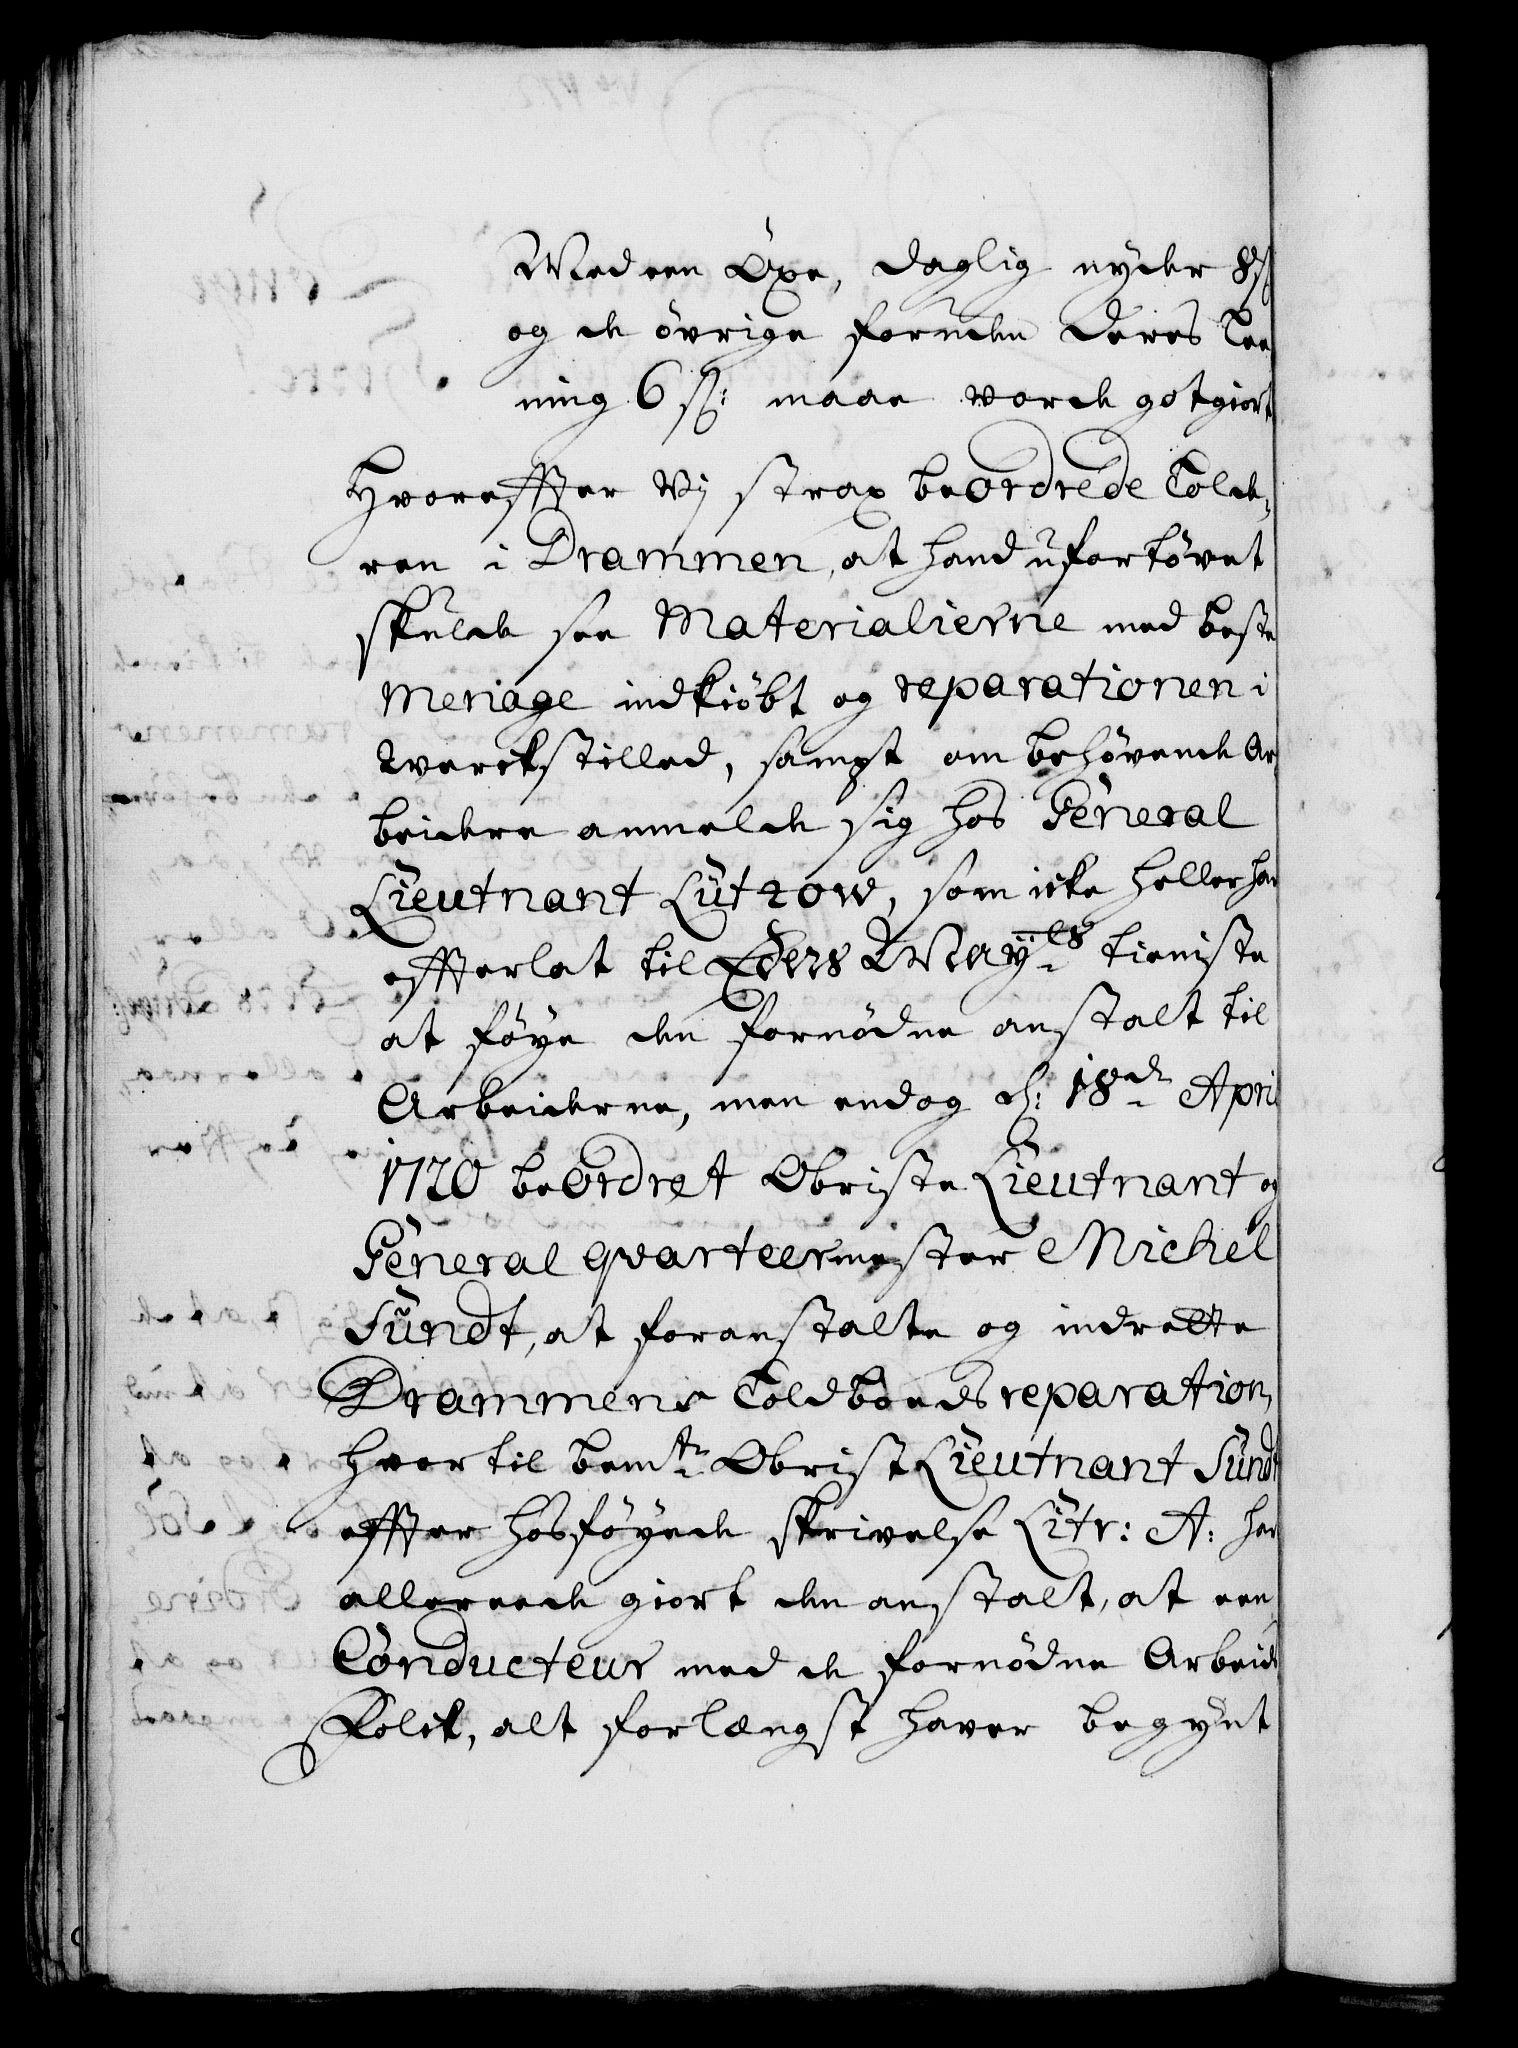 Med een Öxe, daglig nyder 8 s
og de övrige foruden deres Tee
ning 6 s: maae vorde gotgiort
Hvoreffter Vy strax beordrede Tolde,,
ren i Drammen, at hand ufortövet
skulde see Materialierne med beste
Menage indkiöbt og reparationen i
Werckstilled, sampt om behövende Ar
beidere anmelde sig hos General
Lieutnant Lützow, som icke heller har
efferlat til Eders May:ts tieniste
at föye den fornödne anstalt til
Arbeiderne, men endog d: 18de April
1720 beordret Obriste Lieutnant og
General qvarteermester Michel
Sundt, at foranstalte og indrette
Drammens Toldboeds reparation,
hvortil bemte Obrist Lieutnant Sundt
effter hosföyede skrivelse Litr: A: har
allereede giort den anstalt, at een
Conducteur med de fornödne Arbeids
Folck, alt forlængst haver begynt